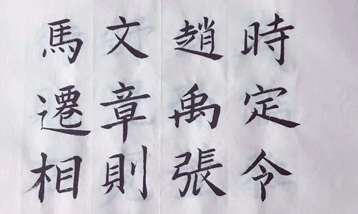 時定令
趙禹張
文章則
馬遷相